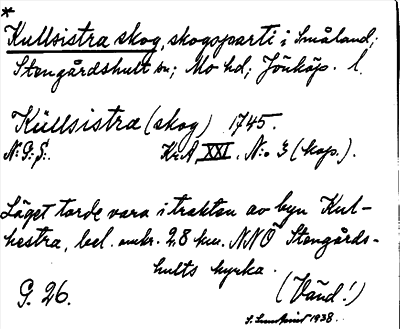 *
Kullsistra skog, skogsparti i Småland;
Stengårdshult sn; Mo hd; Jönköp. l.
Küllsistra (skog) 1745.
N:G:S:. KrA XXI. N:o 3 (kop.).
Läget torde vara i trakten av byn Kul-
hestra, bel. omkr. 2.8 km. NNO Stengårds-
hults kyrka.
G. 26. (Vänd!)
1938.